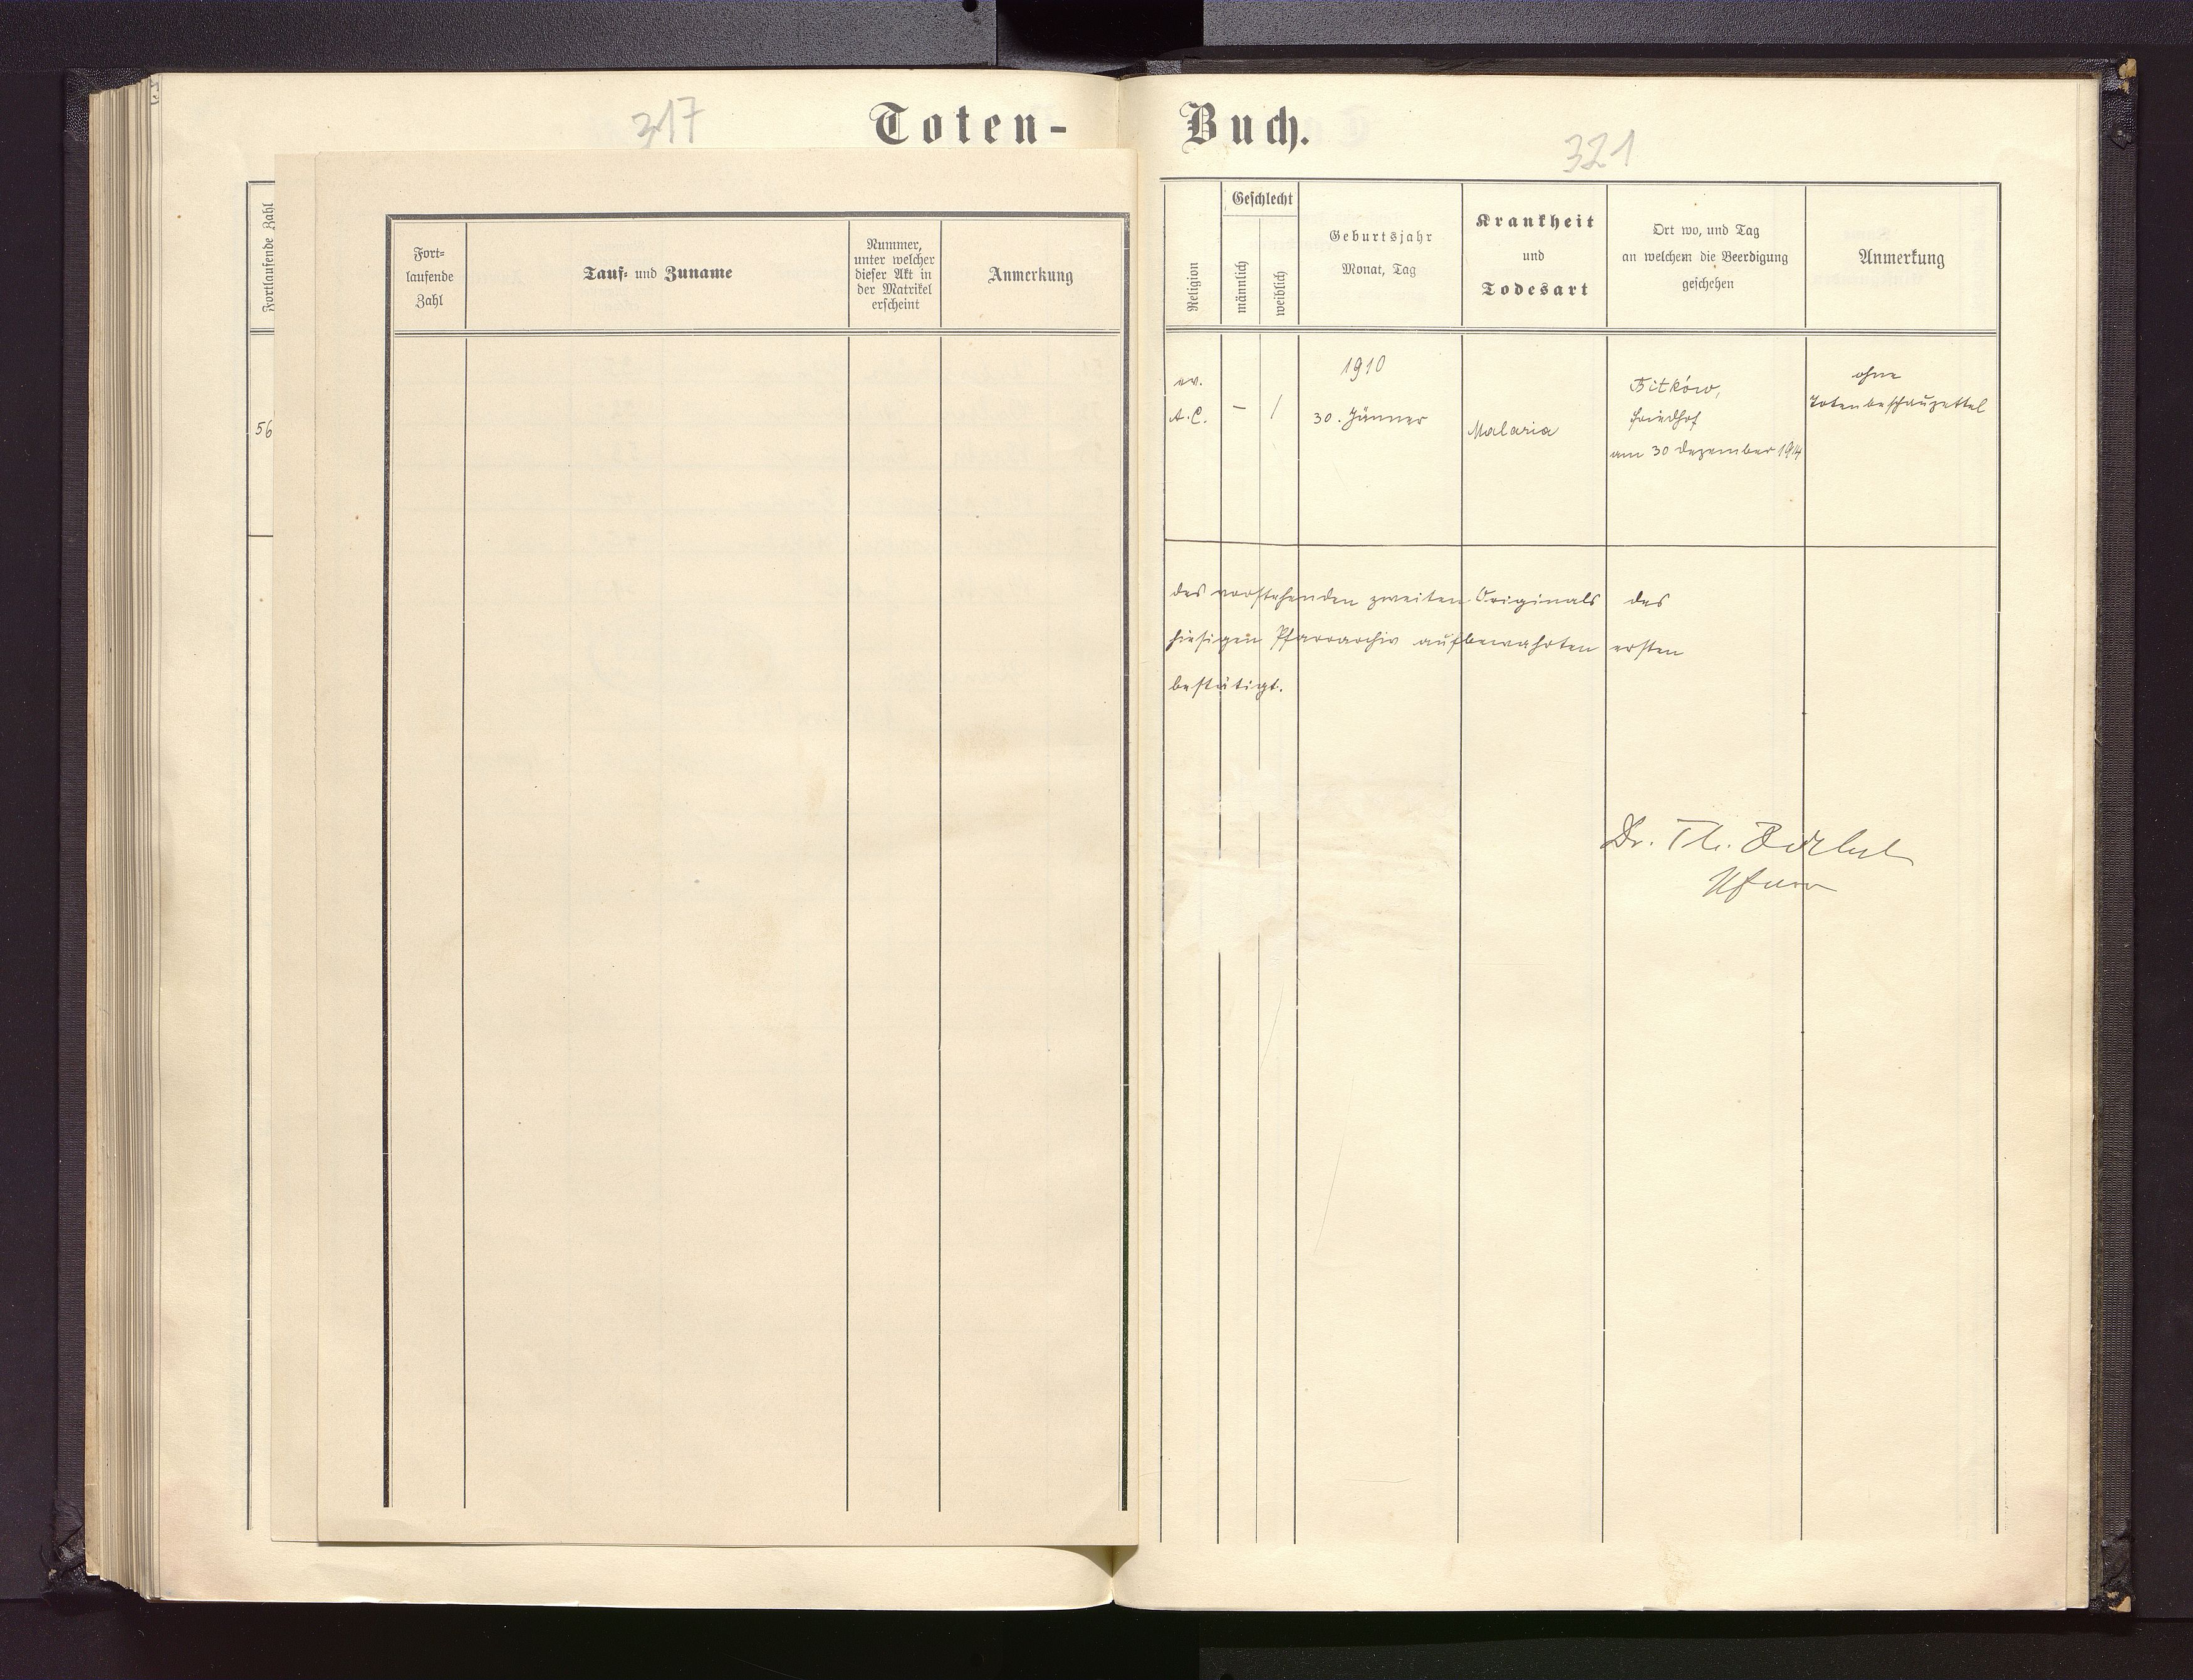 317
Toten-
Buch.
321
Fortlaufende Zahl
56
Fort-
laufende
Zahl
Tauf- und Zuname
Nummer,
unter welcher
dieser Akt in
der Matrikel
erscheint
Anmerkung
Religion
Geschlecht
männlich
weiblich
Geburtsjahr
Monat, Tag
Krankheit
und
Todesart
Ort wo, und Tag
an welchem die Beerdigung
geschehen
Anmerkung
ev.
A. C.
–
/
1910
30. Jänner
Malaria
Bitków,
Friedhof
am 30 Dezember 1914
ohne
Totenbeschauzettel
des vorstehenden zweiten Originals des
hiesigen Pfarrarchiv aufbewahrten ersten
bestätigt.
Dr. Th.
Pfarrer